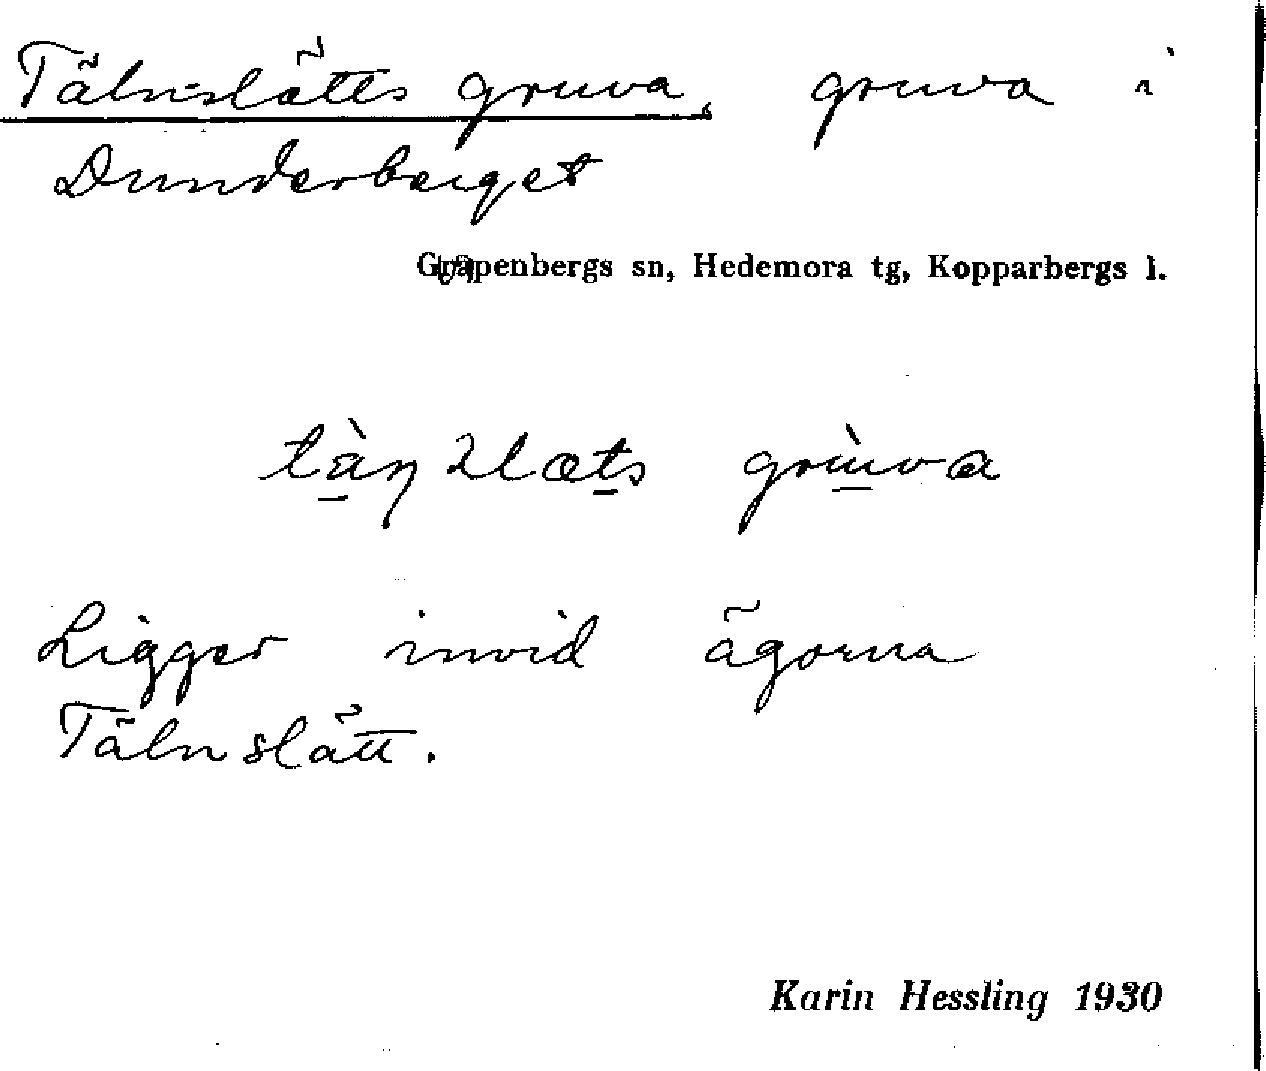 Tälnslätts gruva, gruva i
Dunderberget
Garpenbergs sn, Hedemora tg, Kopparbergs l.
grùva
Ligger invid ägorna
Tälnslätt.
Karin Hessling 1930